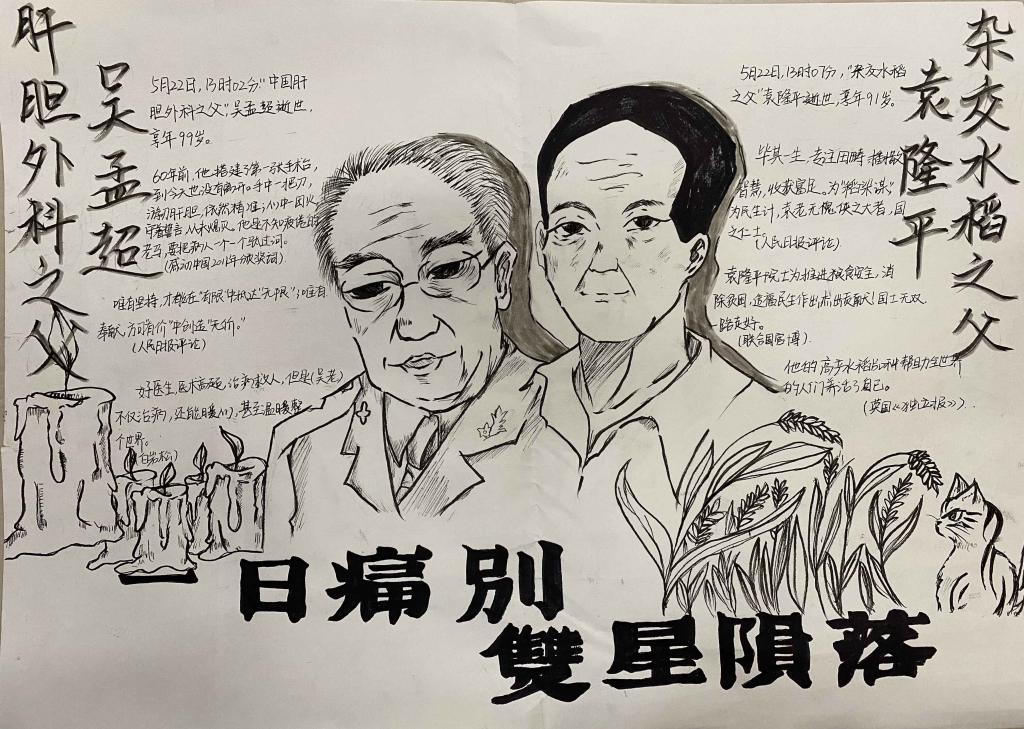 肝胆外科之父
吴孟超
5月22日,13时02分“中国肝
胆外科之父”吴孟超逝世,
享年99岁。
60年前,他搭建了第一张手术台,
到今天也没有离开。手中一把刀,
游刃肝胆,依然精准;心中一团火,
守着誓言,从未熄灭。他是不知疲倦的
老马,要把病人一个一个驮过河。
(感动中国2011年颁奖词)
唯有坚持,才能在“有限”中抵达“无限”;唯有
奉献,方可有价“中创造”无价。”
(人民日报评论)
好医生,医术高超,治病救人,但是(吴老)
不仅治病,还能暖心,甚至温暖整
个世界。
(白岩松)
杂交水稻之父
袁隆平
5月22日,13时07分,“杂交水稻
之父”袁隆平逝世,享年91岁。
毕其一生,专注田畴,播撒
智慧,收获富足。为“稻粱谋”
为民生计,袁老无愧侠之大者,国
之仁士。
(人民日报评论)
袁隆平院士为推进粮食安全,消
除贫困,造福民生作出杰出贡献!国士无双
一路走好。
(联合国官博)
他的高产水稻品种帮助全世界
的人们养活了自己。
(英国《独立报》)
一日痛别
雙星隕落